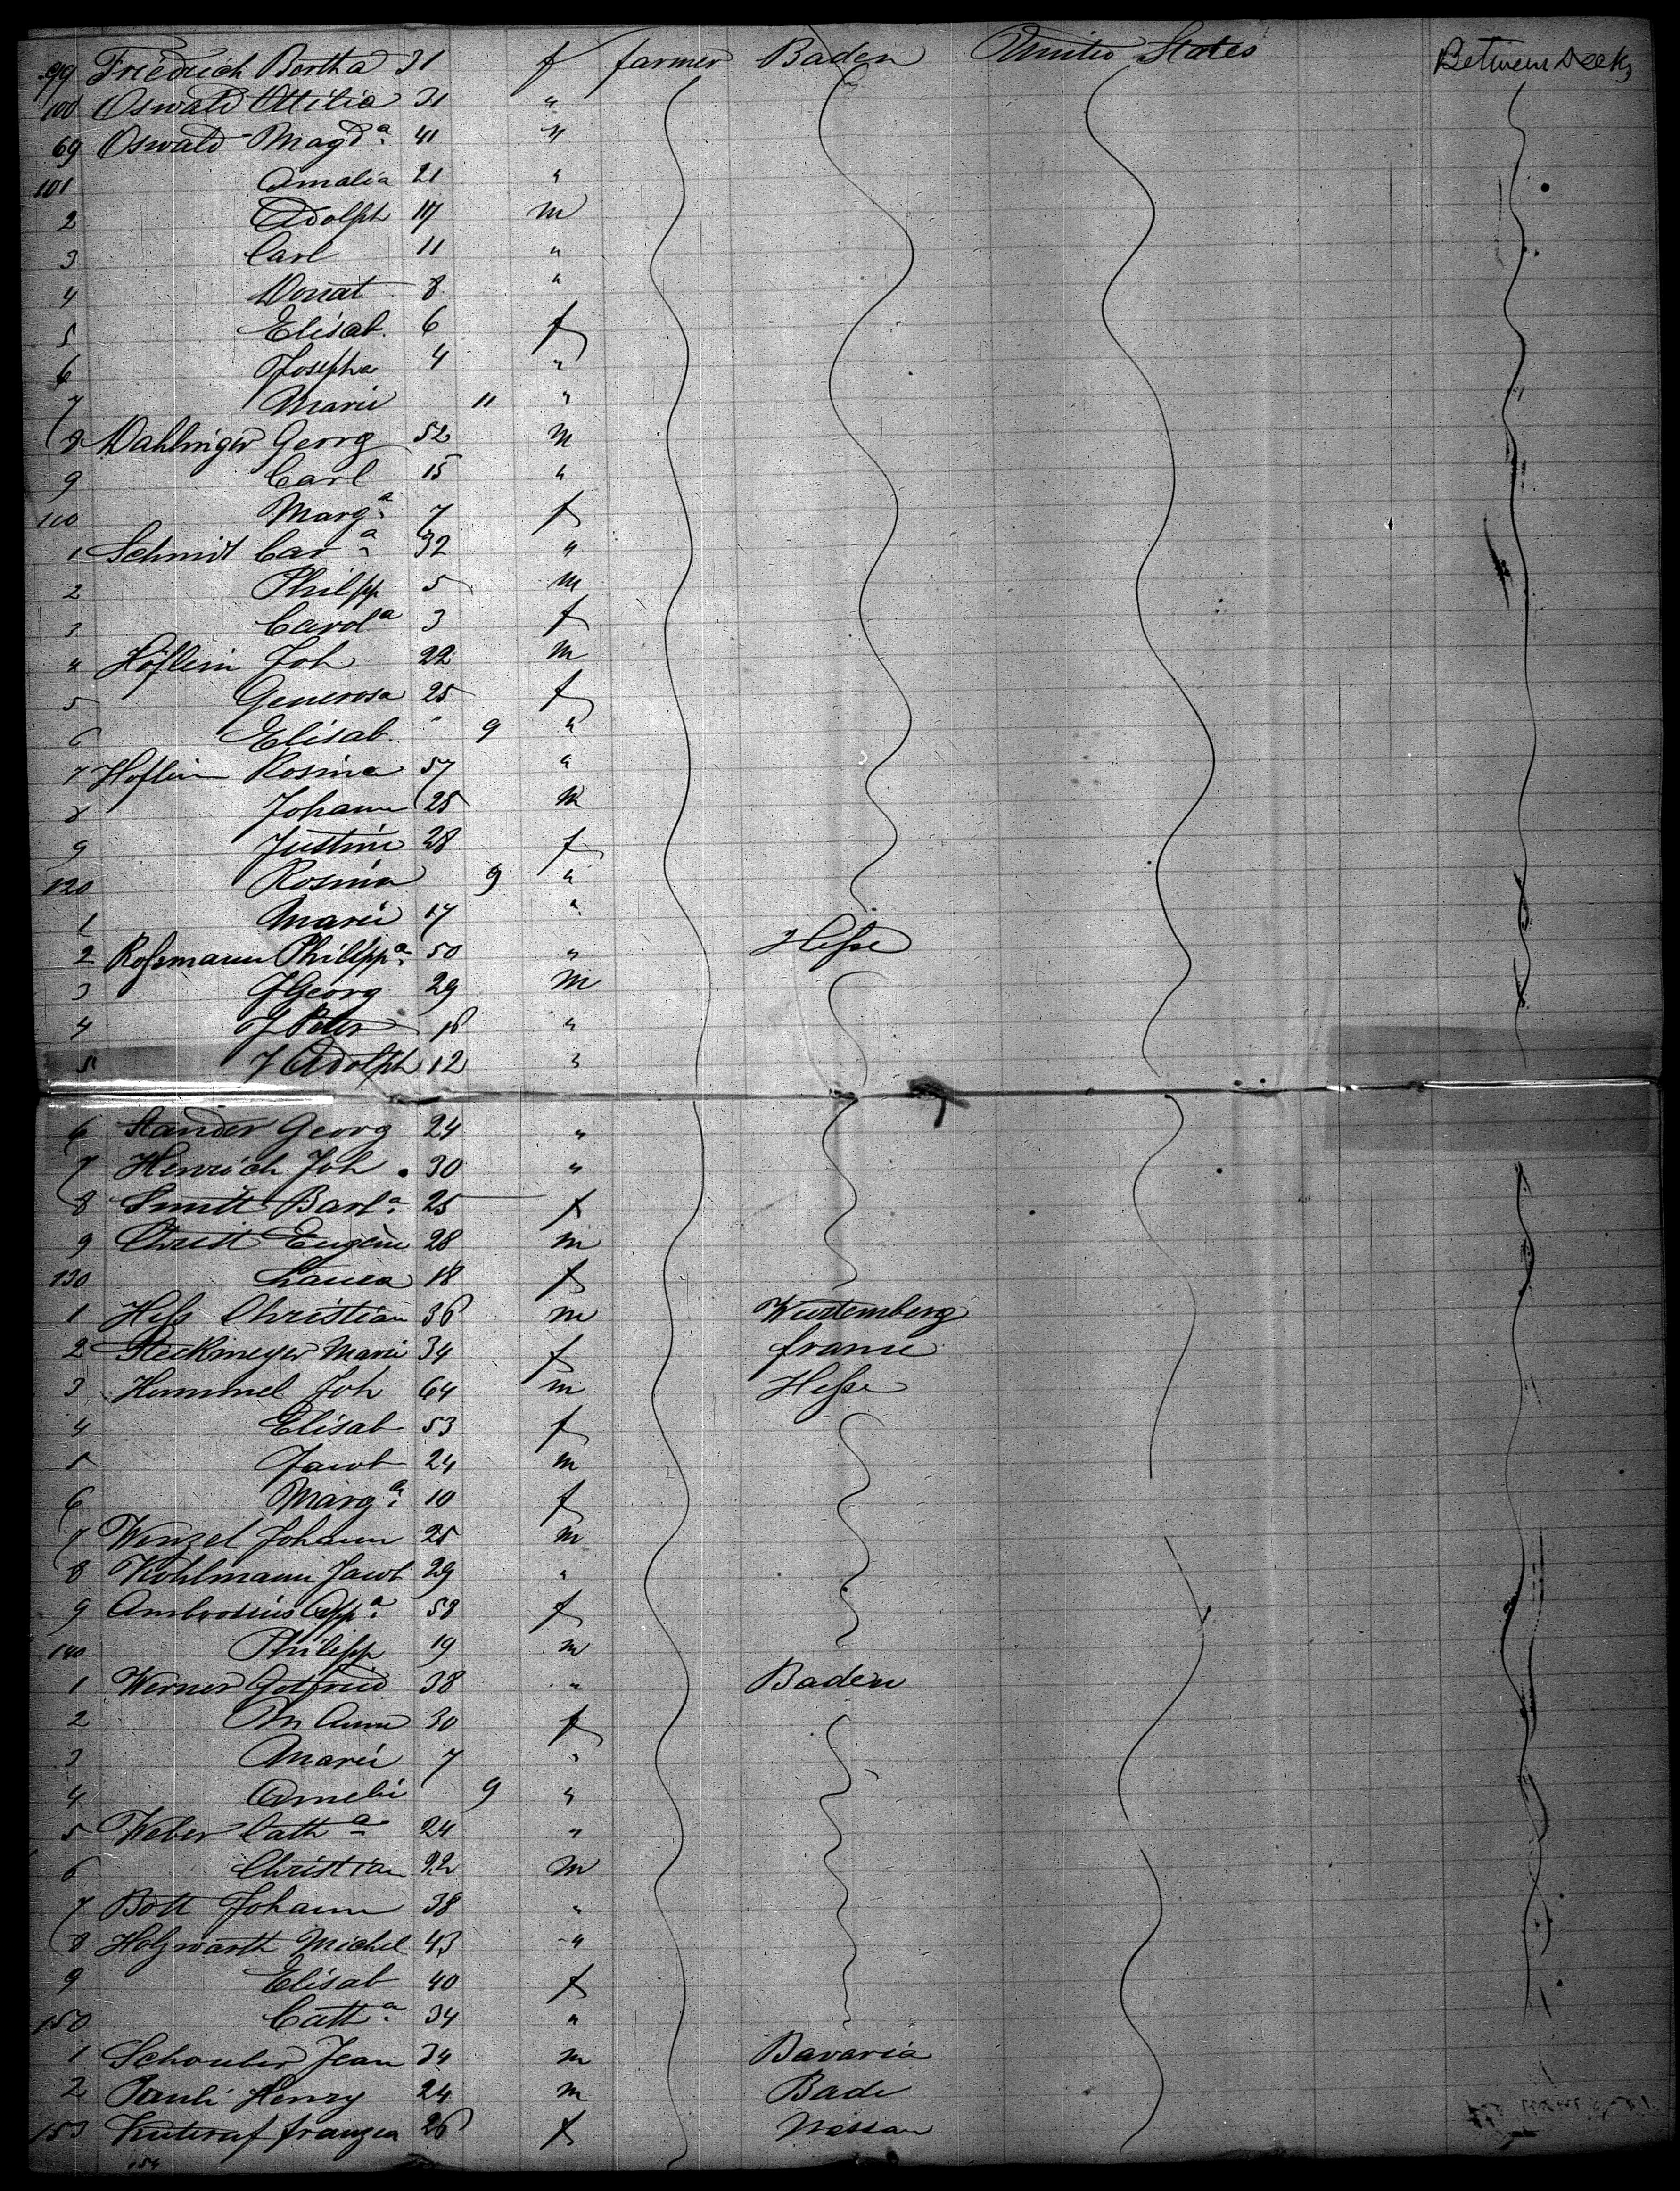 99 Friedrich Bertha 31 f farmer Baden United States Between Decks
100 Oswald Ottilia 31 "
69 Oswald Magda. 41 "
101 Amalia 21 "
2 Adolph 17 m
3 Carl 11 "
4 Donat 8 "
5 Elisab. 6 f
6 Josepha 4 "
7 Marie 11 "
8 Dahlinger Georg 52 m
9 Carl 15 "
110 Marga. 7 f
1 Schmidt Cara 32 "
2 Philipp 5 m
3 Carola 3 f
4 Höflein Joh 22 m
5 Generosa 25 f
6 Elisab. 9 "
7 Höflein Rosina 57 "
8 Johann 25 m
9 Justine 28 f
120 Rosina 9 "
1 Marie 17 "
2 Roßmann Philippa. 50 " Hesse
3 J Georg 29 m
4 J Peter 18 "
5 J Adolph 12 "
6 Stander Georg 24 "
7 Henrich Joh. 30 "
8 Barba. 25 f
9 Christ Eugène 28 m
130 Laura 18 f
1 Hess Christian 36 m Wurtemberg
2 Steckmeyer Marie 34 f france
3 Hummel Joh 64 m Hesse
4 Elisab 53 f
5 Jacob 24 m
6 Marga. 10 f
7 Wenzel Johann 25 m
8 Kohlmann Jacob 29 "
9 Ambrosius Appa. 58 f
140 Philipp 19 m
1 Werner Gotfried 38 " Baden
2 M Anna 30 f
3 Marie 7 "
4 Amelie 9 "
5 Weber Catha 24 "
6 Christian 22 m
7 Bott Johann 38 "
8 Holzwarth Michel 43 "
9 Elisab 40 f
150 Catha. 34 "
1 Schouber Jean 34 m Bavaria
2 Pauli Henry 24 m Bade
153 franzca 26 f Nassau
154